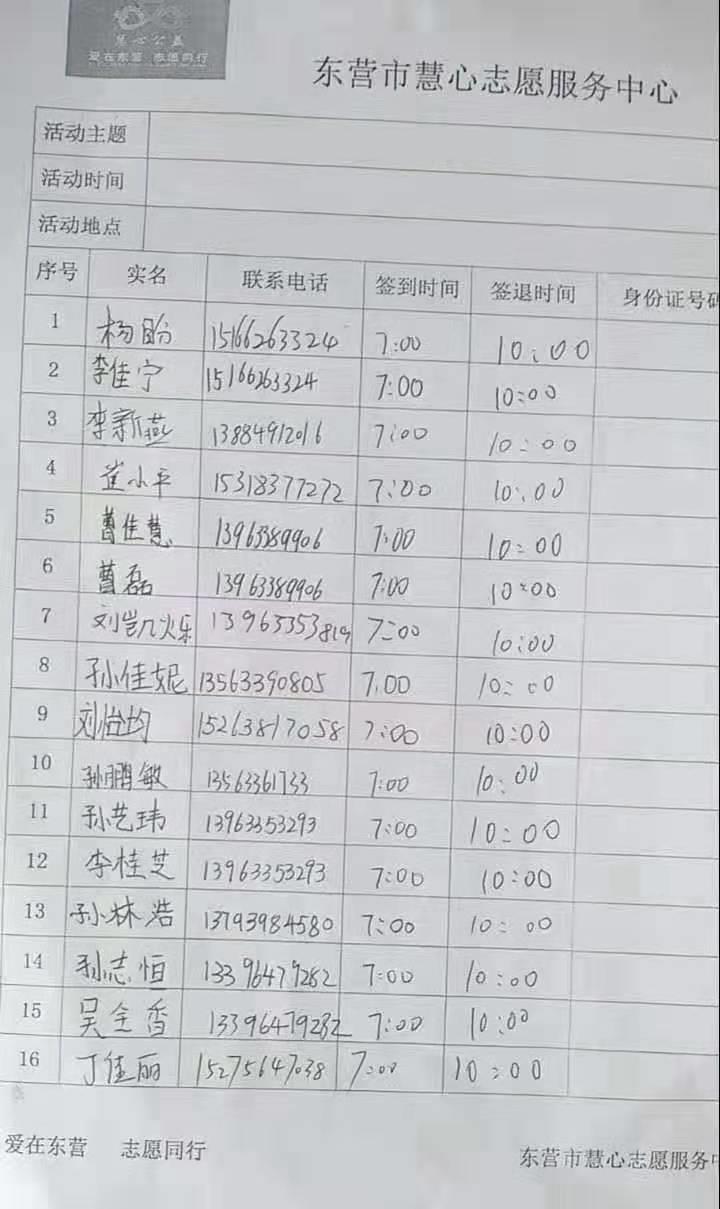 慧心公益
爱在东营 志愿同行
东营市慧心志愿服务中心
活动主题
活动时间
活动地点
序号 实名 联系电话 签到时间 签退时间 身份证号码
1 杨盼 15166263324 7:00 10:00
2 李佳宁 15166263324 7:00 10:00
3 李新燕 13884912016 7:00 10:00
4 崔小平 15318377272 7:00 10:00
5 曹佳慧 13963389906 7:00 10:00
6 曹磊 13963389906 7:00 10:00
7 刘凯烁 13963353819 7:00 10:00
8 孙佳妮 13563390805 7:00 10:00
9 刘怡均 15263817058 7:00 10:00
10 孙鹏敏 13563361733 7:00 10:00
11 孙艺玮 13963353293 7:00 10:00
12 李桂芝 13963353293 7:00 10:00
13 孙林浩 13793984580 7:00 10:00
14 孙志恒 13396479282 7:00 10:00
15 吴全香 13396479282 7:00 10:00
16 丁佳丽 15275647038 7:00 10:00
爱在东营 志愿同行 东营市慧心志愿服务中